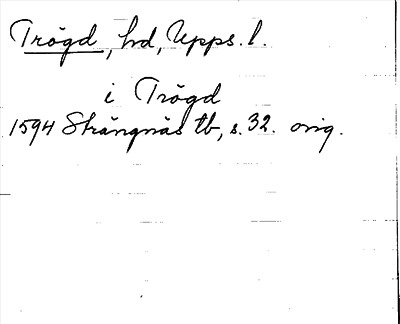 Trögd, hd, Upps. l.
i Trögd
1594 Strängnäs tb, s. 32. orig.